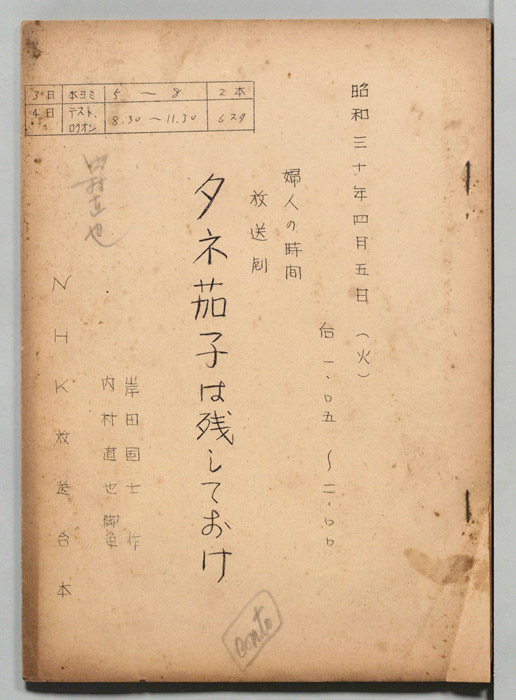 昭和三十年四月五日（火）
后一、〇五～二、〇〇
婦人の時間
放送劇
タネ茄子は残しておけ
岸田国士 作
内村直也 脚色
NHK放送台本
3日 本ヨミ 5 ～ 8 2本
4日 テスト、ロクオン 8.30～11.30 6スタ
内村直也